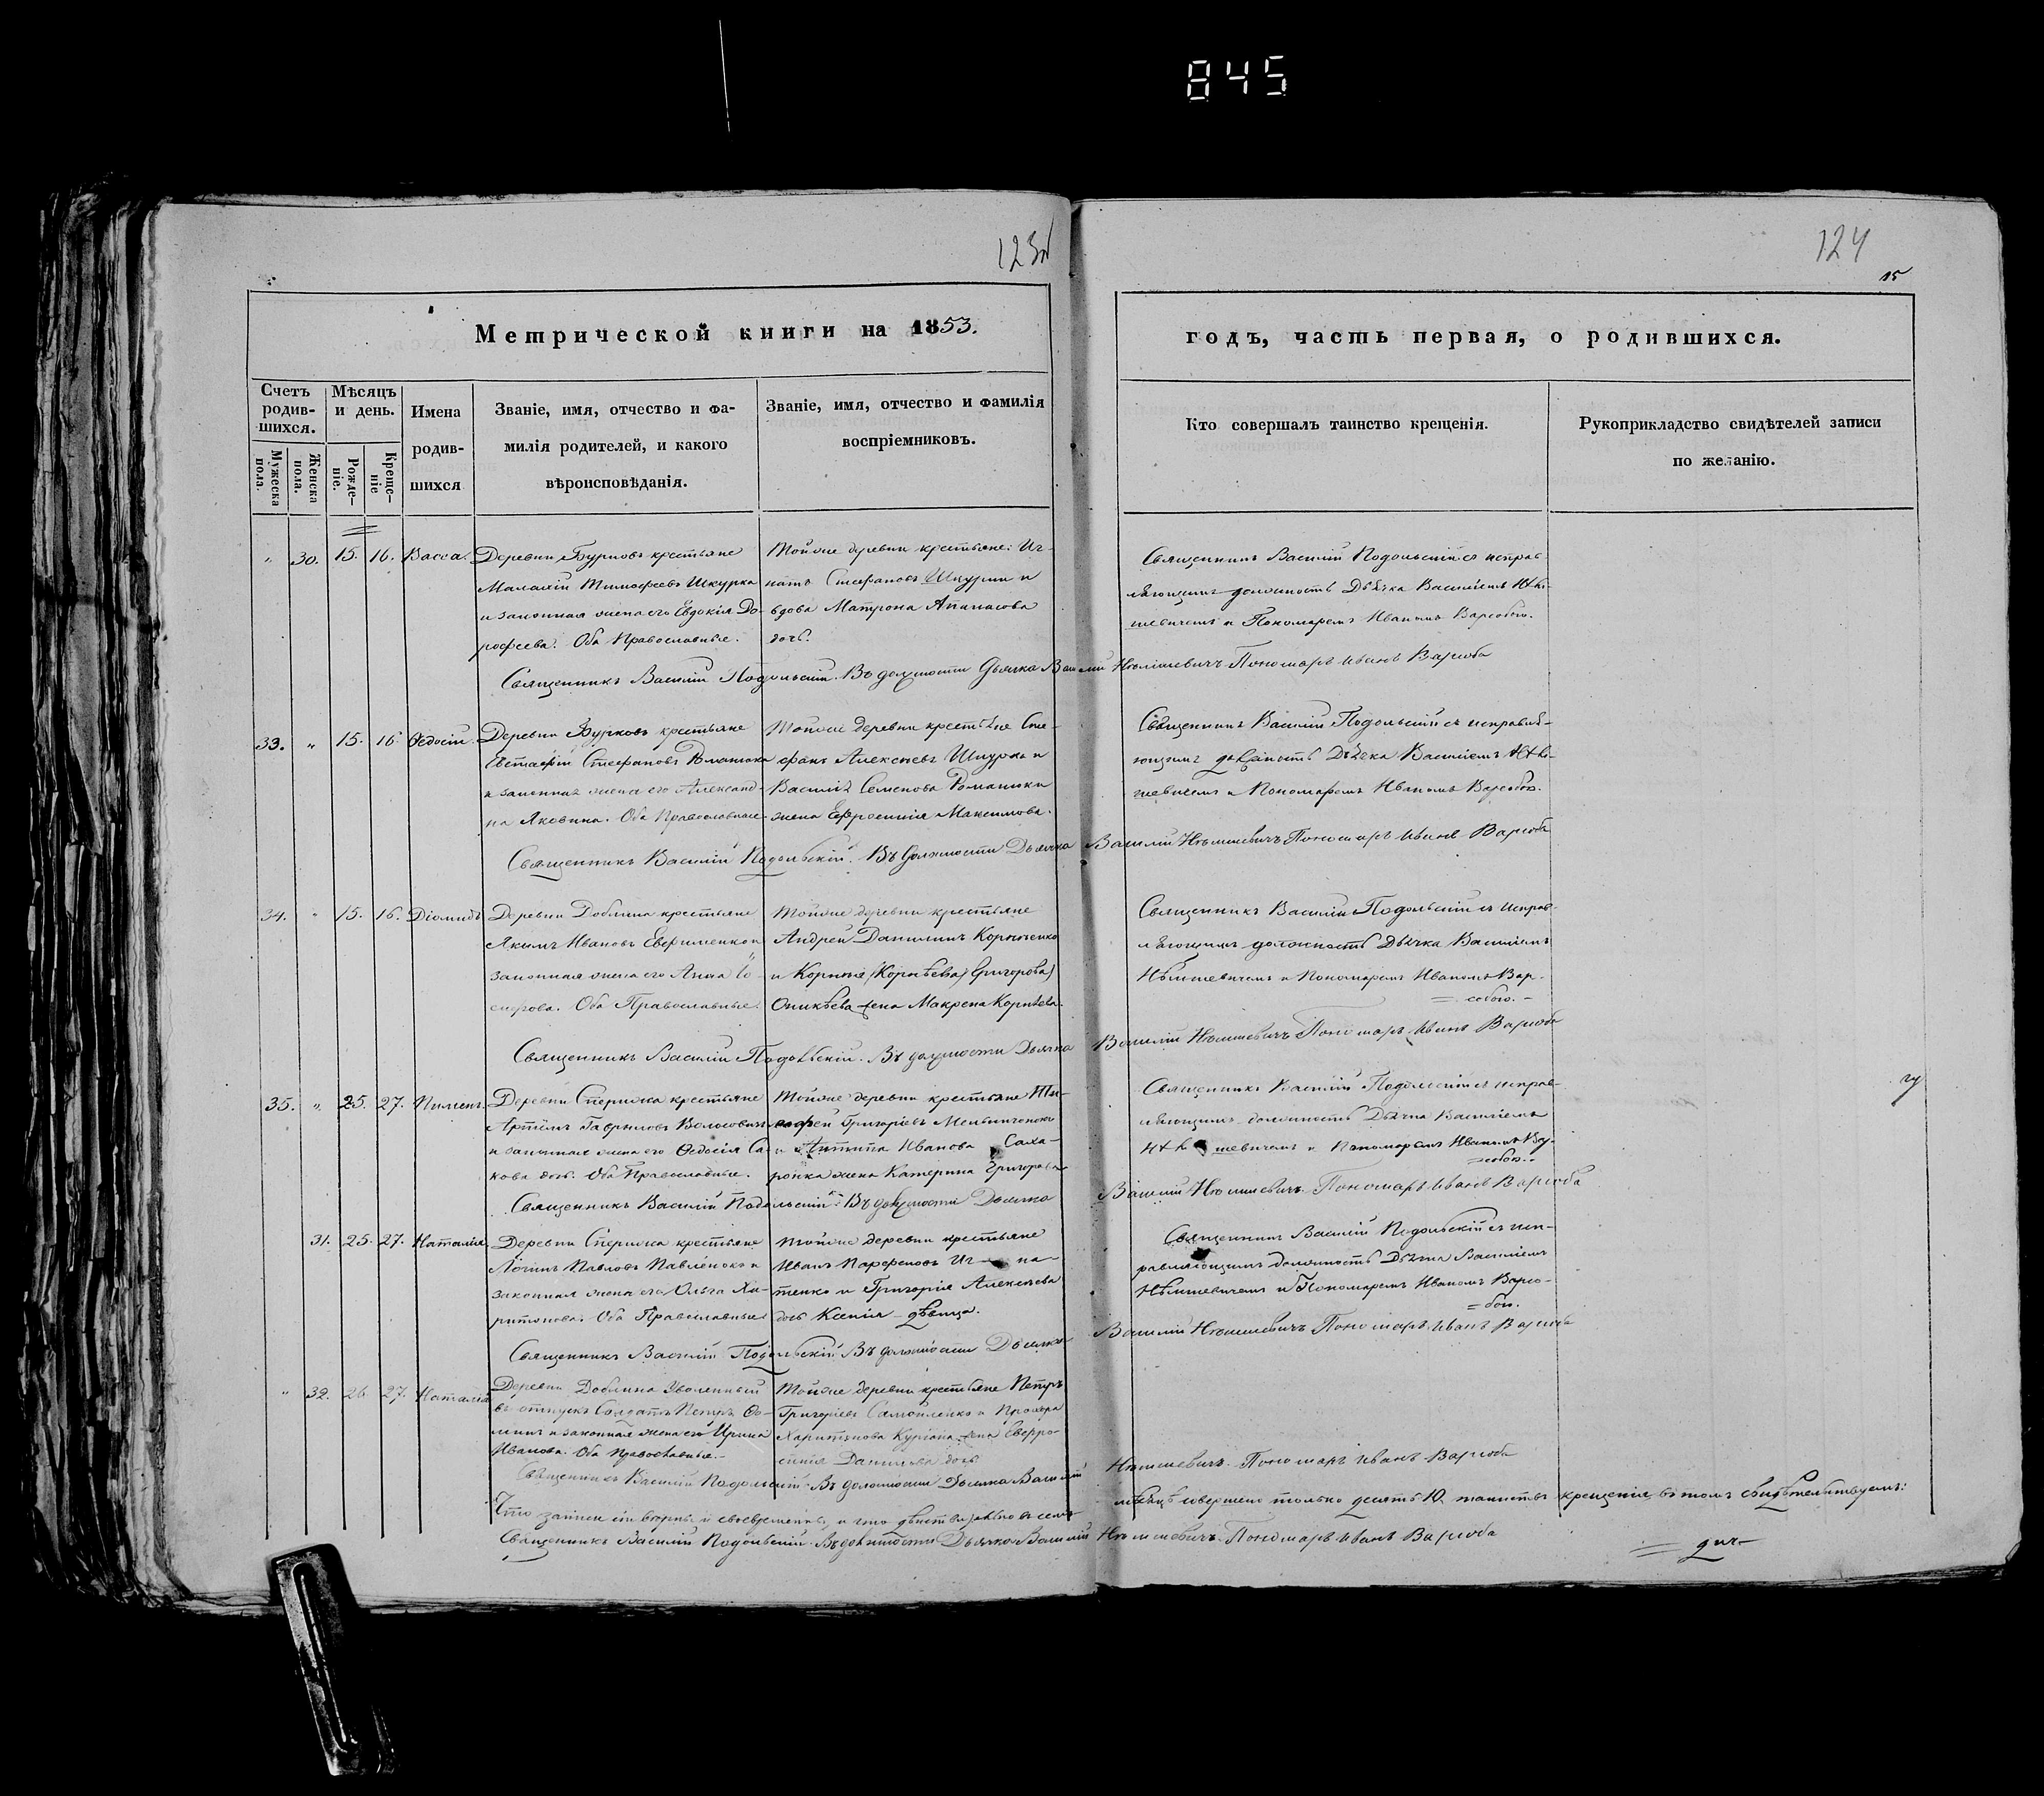 845
123
124
15
Метрической книги на 1853.
годъ, часть первая, о родившихся.
Счетъ родив-шихся.
Мѣсяцъ и день.
Имена родив-шихся
Званіе, имя, отчество и фа-
милія родителей, и какого
вѣроисповѣданія.
Званіе, имя, отчество и фамилія
воспріемниковъ.
Кто совершалъ таинство крещенія.
Рукоприкладство свидѣтелей записи
по желанію.
Мужеска пола.
Женска пола.
Рожде-ніе.
Креще-ніе
" 30. 15. 16. Васса.
Деревни Бурковъ крестьяне
Малахій Тимофеевъ Шкурка
и законная жена его Евдокія До-
рофеева. Оба Православные.
Тойже деревни крестьяне: Иг-
натъ Стефановъ и
вдова Матрона Апанасова
дочь.
Священникъ Василій Подольскій съ исправ-
ляющимъ должность Дьячка Василіемъ Нѣм-
шевичемъ и Пономаремъ Иваномъ Варсобою.
Священникъ Василій Подольскій. Въ должности Дьячка Василій Нѣмшевичъ Пономарь Иванъ Варсоба
33. " 15. 16. Ѳедосій.
Деревни Бурковъ крестьяне
Евстафій Стефановъ Романюка
и законная жена его Александ-
ра Яковина. Оба Православные
Тойже деревни крестьяне Сте-
фанъ Алексѣевъ Шкурка и
Василія Семенова Романюка
жена Евфросинія Максимова.
Священникъ Василій Подольскій съ исправля-
ющимъ должность Дьячка Василіемъ Нѣм-
шевичемъ и Пономаремъ Иваномъ Варсобою.
Священникъ Василій Подольскій. Въ должности Дьячка Василій Нѣмшевичъ Пономарь Иванъ Варсоба
34. " 15. 16. Діомидъ
Деревни Доблина крестьяне
Якимъ Ивановъ Евфименко и
законная жена его Анна Іо-
сифова. Оба Православные.
Тойже деревни крестьяне
Андрей Данилинъ Корниенко
и Корнія (Корнѣева) Григорова)
Оникѣева жена Макрена Корнѣева.
Священникъ Василій Подольскій съ исправ-
ляющимъ должность Дьячка Василіемъ
Нѣмшевичемъ и Пономаремъ Иваномъ Вар-
собою.
Священникъ Василій Подольскій. Въ должности Дьячка Василій Нѣмшевичъ Пономарь Иванъ Варсоба
35. " 25. 27. Пименъ.
Деревни крестьяне
Артёмъ Гавриловъ Волосовикъ
и законная жена его Ѳедосія Са-
кова дочь. Оба Православные.
Тойже деревни крестьяне Ти-
мофей Григоріевъ Мельниченокъ
и Антипа Иванова Саха-
ронка жена Катерина Григорова
Священникъ Василій Подольскій съ исправ-
ляющимъ должность Дьячка Василіемъ
Нѣмшевичемъ и Пономаремъ Иваномъ Вар-
собою.
Священникъ Василій Подольскій. Въ должности Дьячка Василій Нѣмшевичъ. Пономарь Иванъ Варсоба
31. 25. 27. Наталія.
Деревни крестьяне
Логинъ Павловъ Павленокъ и
законная жена его Ольга Ха-
ритонова. Оба Православные
Тойже деревни крестьяне
Иванъ Парфеновъ Иг-на-
тенко и Григорія Алексѣева
дочь Ксенія дѣвица.
Священникъ Василій Подольскій съ исп-
равляющимъ должность Дьячка Василіемъ
Нѣмшевичемъ и Пономаремъ Иваномъ Варсо-
бою.
Священникъ Василій Подольскій Въ должности Дьячка Василій Нѣмшевичъ Пономарь Иванъ Варсоба
" 32. 26. 27. Наталія
Деревни Доблина Уволенный
въ отпускъ Солдатъ Петръ Ѳо-
минъ и законная жена его Ирина
Иванова. Оба Православные.
Тойже деревни крестьяне Петръ
Григоріевъ Самойленко и Прохора
Харитонова жена Евфро-
синія Данилова дочь
Священникъ Василій Подольскій. Въ должности Дьячка Василій Нѣмшевичъ. Пономарь Иванъ Варсоба
Что записи сіи вѣрны и своевременны, и что дѣйствительно въ семъ мѣсяцѣ совершено только десять 10. таинствъ крещенія, въ томъ свидѣтельствуемъ:
Священникъ Василій Подольскій. Въ должности Дьячка Василій Нѣмшевичъ. Пономарь Иванъ Варсоба